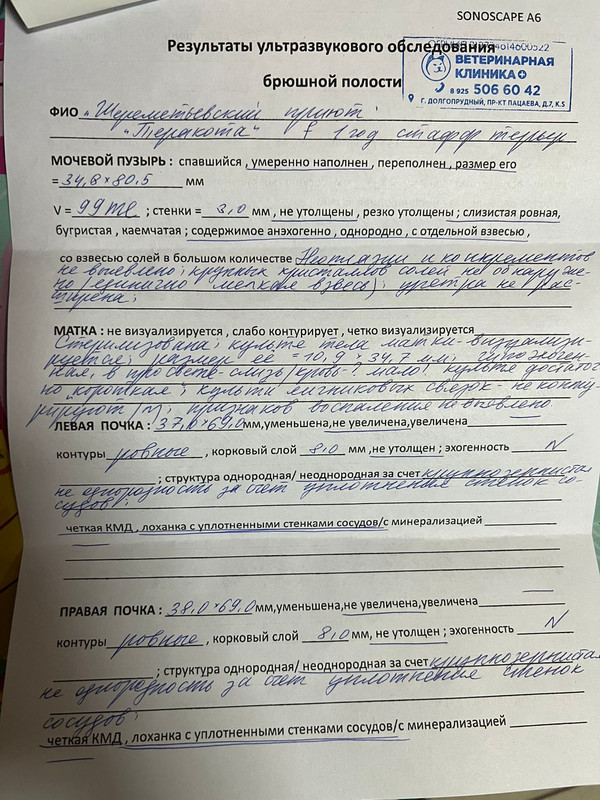 SONOSCAPE A6
Результаты ультразвукового обследования
брюшной полости
ВЕТЕРИНАРНАЯ
КЛИНИКА
8 925 506 60 42
Г. ДОЛГОПРУДНЫЙ, ПР-КТ ПАЦАЕВА, Д.7, К.5
ФИО "Шереметьевский приют"
"Теракота" 1 год стафф терьер
МОЧЕВОЙ ПУЗЫРЬ : спавшийся , умеренно наполнен , переполнен , размер его
= 34,8 × 80,5 мм
V = 99 ml ; стенки = 3,0 мм , не утолщены , резко утолщены ; слизистая ровная,
бугристая , каемчатая ; содержимое анэхогенно , однородно , с отдельной взвесью ,
со взвесью солей в большом количестве Неоплазии и конкрементов
не выявлено; крупных кристаллов солей не обнаруже-
но (единично мелкая взвесь); уретра не рас-
ширена;
МАТКА : не визуализируется , слабо контурирует , четко визуализируется
Стерилизована; культе тела матки-визуализи-
руется; размер ее = 10,9 × 34,7 мм; гипоэхоген-
ная, в просвете-слизь/кровь-? мало; культе достаточ
но "короткая"; культи яичниковых связок - не конту-
рируют /N/; признаков воспаления не выявлено.
ЛЕВАЯ ПОЧКА : 37,0 × 69,0 мм,уменьшена,не увеличена,увеличена
контуры ровные , корковый слой 8,0 мм ,не утолщен ; эхогенность N
; структура однородная/ неоднородная за счет крупнозернистая
не однородность за счет уплотнения стенок со-
судов;
четкая КМД , лоханка с уплотненными стенками сосудов/с минерализацией
ПРАВАЯ ПОЧКА : 38,0 × 69,0 мм,уменьшена,не увеличена,увеличена
контуры ровные , корковый слой 8,0 мм, не утолщен ; эхогенность N
; структура однородная/ неоднородная за счет крупнозернистая
не однородность за счет уплотнения стенок
сосудов;
четкая КМД , лоханка с уплотненными стенками сосудов/с минерализацией